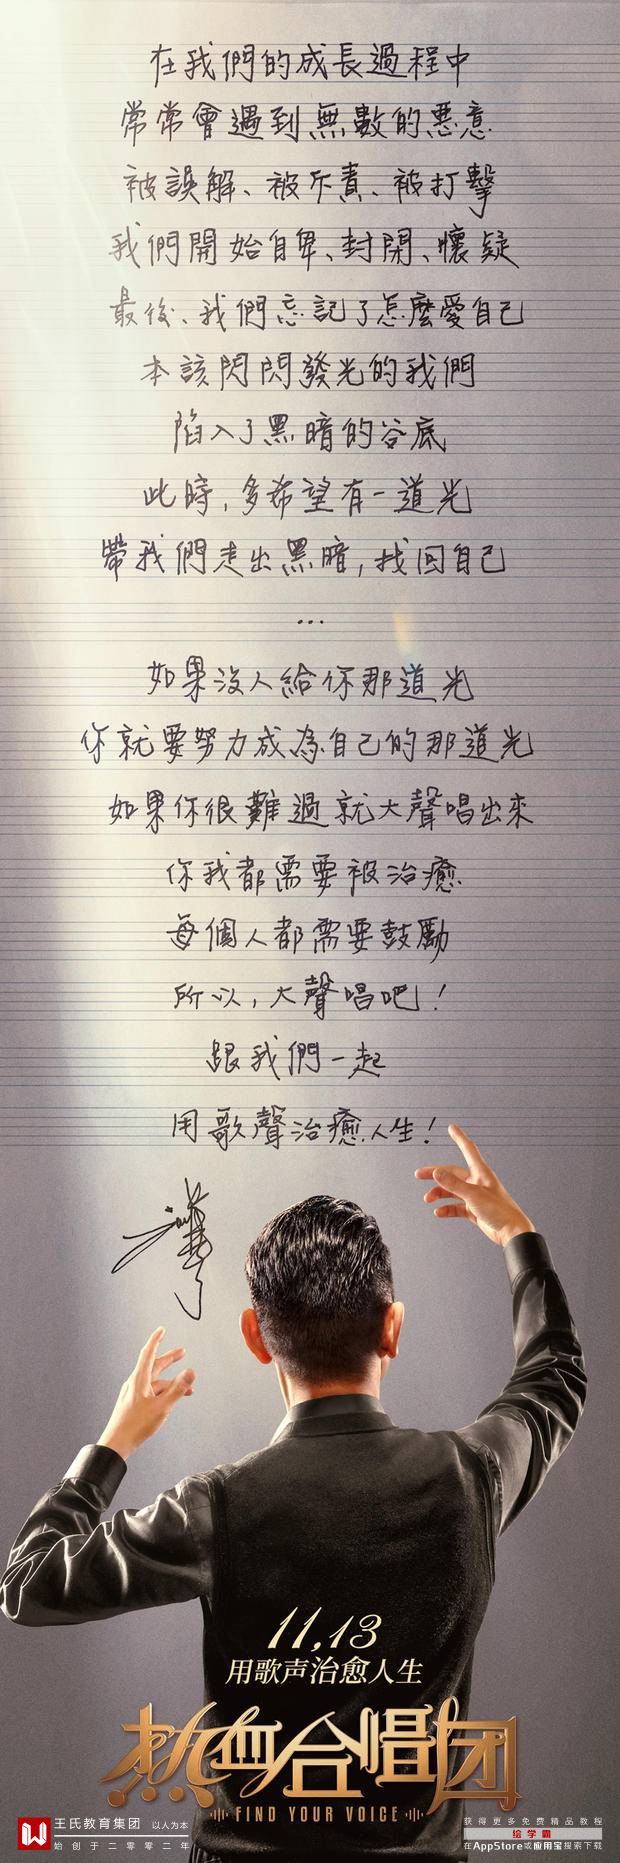 在我們的成長過程中
常常會遇到無數的惡意
被誤解、被斥責、被打擊
我們開始自卑、封閉、懷疑
最後、我們忘記了怎麼愛自己
本該閃閃發光的我們
陷入了黑暗的谷底
此時，多希望有一道光
帶我們走出黑暗，找回自己
...
如果沒人給你那道光
你就要努力成為自己的那道光
如果你很難過就大聲唱出來
你我都需要被治癒
每個人都需要鼓勵
所以，大聲唱吧！
跟我們一起
用歌聲治癒人生！
11,13
用歌声治愈人生
热血合唱团
FIND YOUR VOICE
王氏教育集团 以人为本
始创于二零零二年
获得更多免费精品教程
绘学霸
在AppStore或应用宝搜索下载